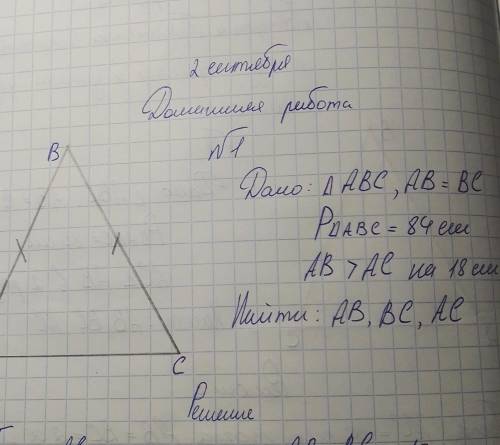 2 сентября
Домашняя работа
№1
B
Дано: Δ ABC, AB = BC
PΔABC = 84 см
AB > AC на 18 см
Найти: AB, BC, AC
C
Решение